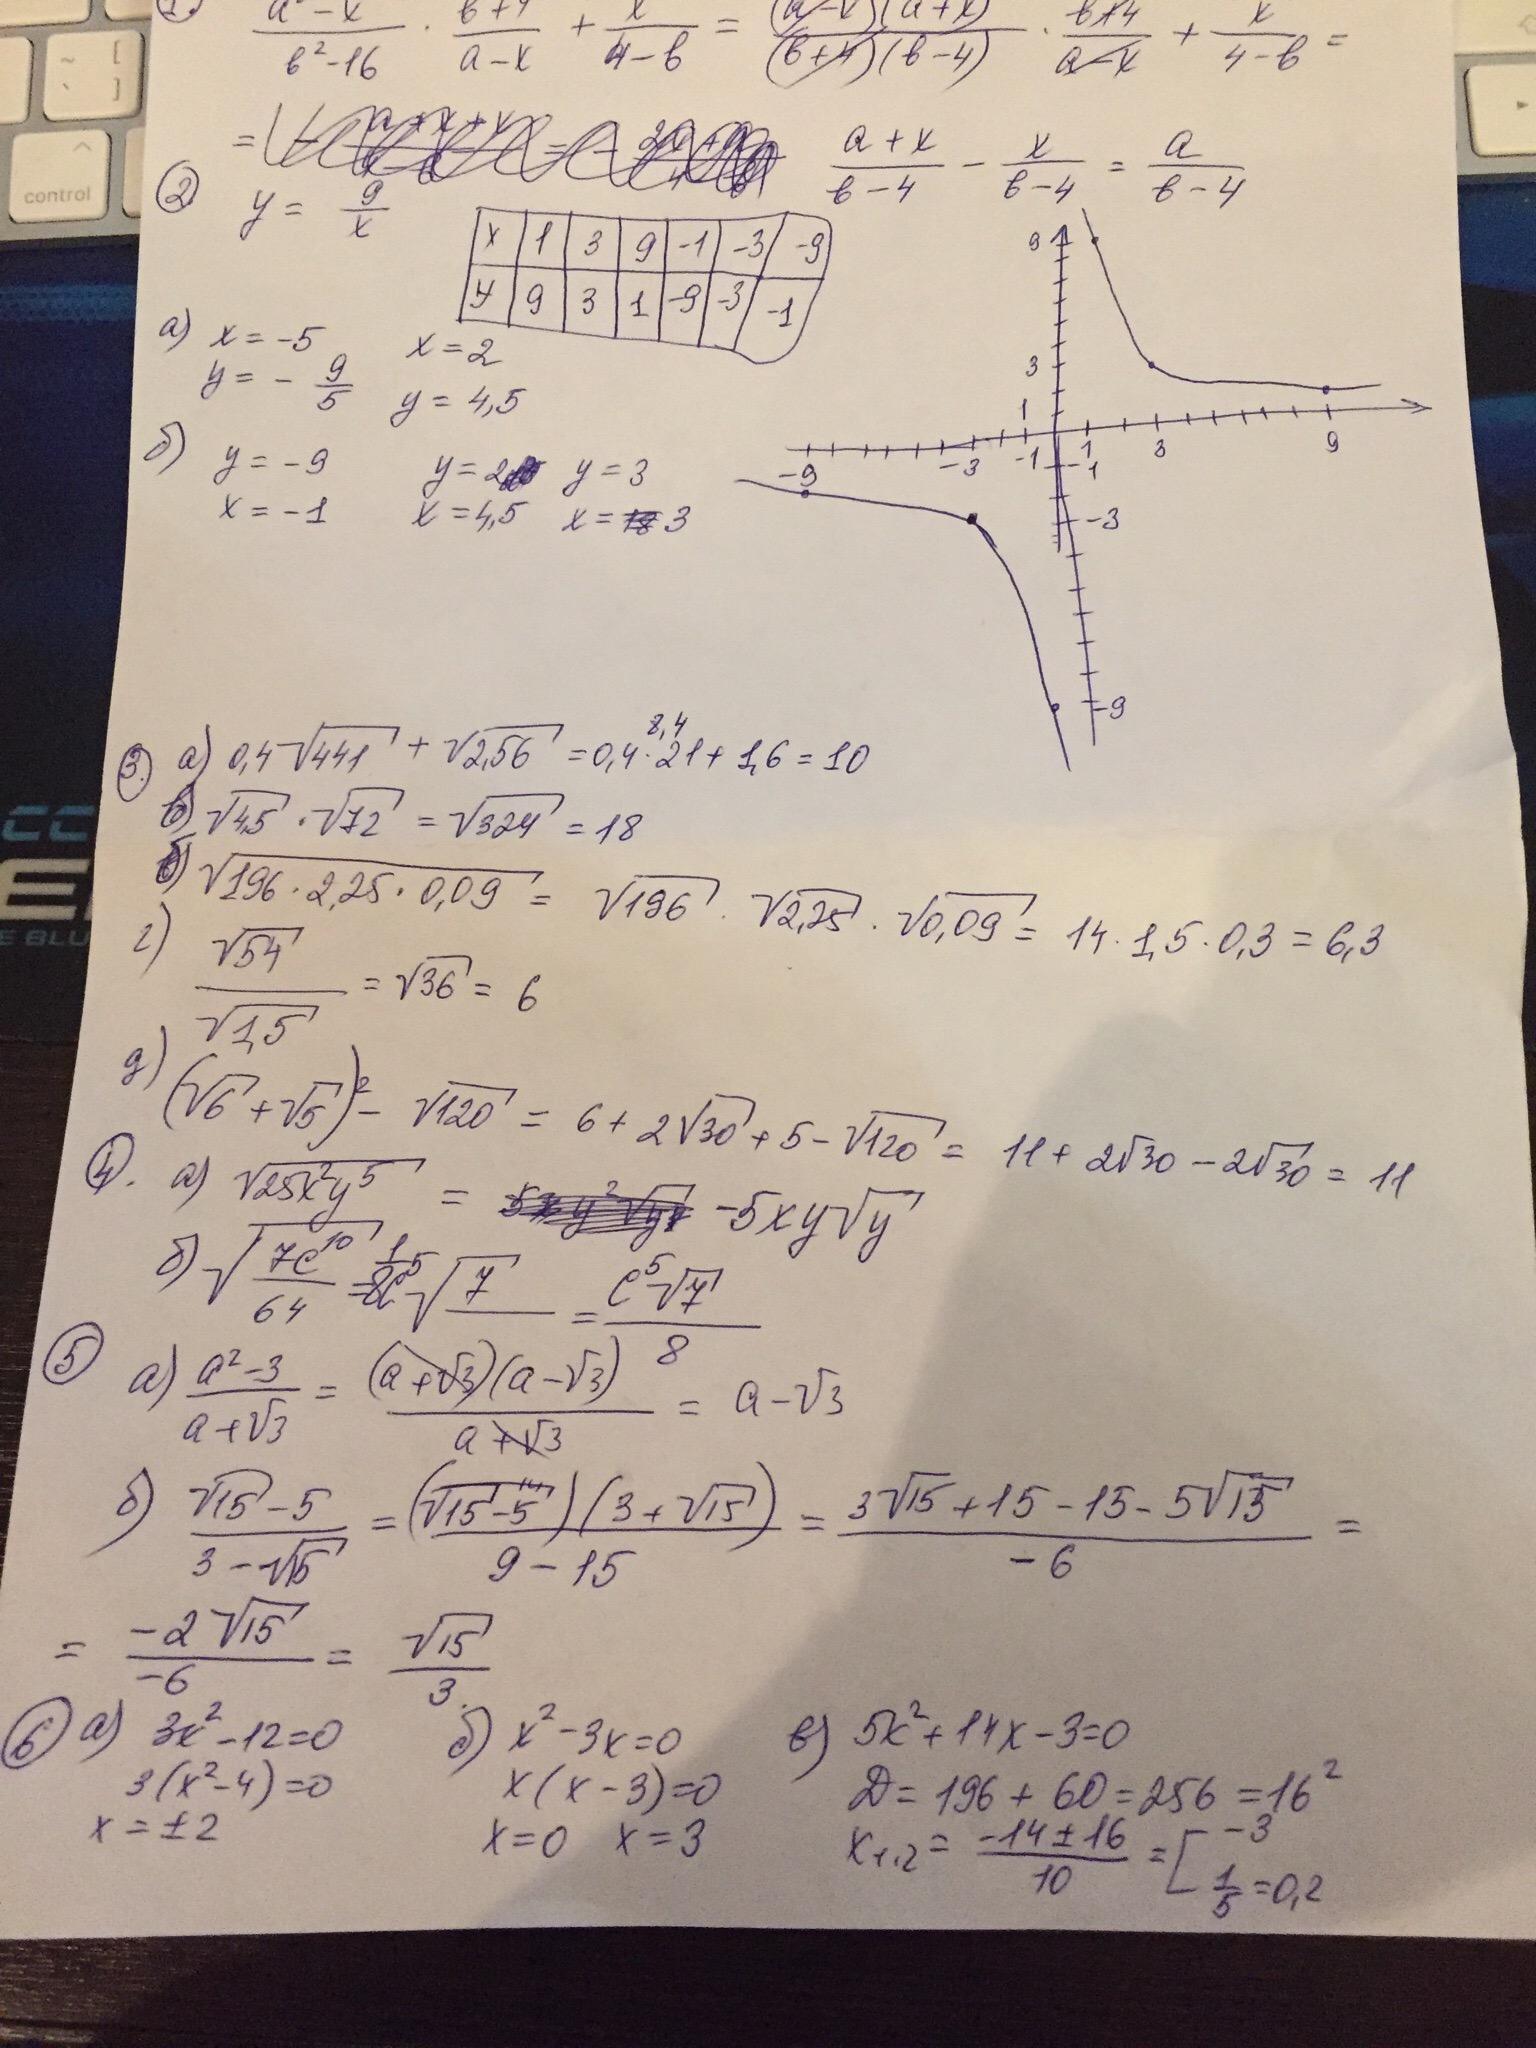 1. (a² - x²)/(в² - 16) · (в+4)/(a-x) + x/(4-в) = ((a-x)(a+x))/((в+4)(в-4)) · (в+4)/(a-x) + x/(4-в) =
= (a+x)/(в-4) - x/(в-4) = a/(в-4)
2. y = 9/x
x 1 3 9 -1 -3 -9
y 9 3 1 -9 -3 -1
а) x = -5 x = 2
y = -9/5 y = 4,5
б) y = -9 y = 2 y = 3
x = -1 x = 4,5 x = 3
9
3
1
-9 -3 -1 1 3 9
-1
-3
-9
3. а) 0,4√441 + √2,56 = 0,4·21 + 1,6 = 10
8,4
в) √4,5 · √72 = √324 = 18
б) √(196·2,25·0,09) = √196 · √2,25 · √0,09 = 14·1,5·0,3 = 6,3
г) √54/√1,5 = √36 = 6
д) (√6 + √5)² - √120 = 6 + 2√30 + 5 - √120 = 11 + 2√30 - 2√30 = 11
4. а) √(25x²y⁵) = -5xy√y
б) √(7c¹⁰/64) = 1/8 c⁵√7 = c⁵√7/8
5 а) (a²-3)/(a+√3) = ((a+√3)(a-√3))/(a+√3) = a-√3
б) (√15-5)/(3-√15) = ((√15-5)(3+√15))/(9-15) = (3√15+15-15-5√15)/(-6) =
= (-2√15)/(-6) = √15/3.
6 а) 3x²-12=0 б) x²-3x=0 в) 5x²+14x-3=0
3(x²-4)=0 x(x-3)=0 D = 196 + 60 = 256 = 16²
x = ±2 x=0 x=3 x₁,₂ = (-14±16)/10 = [ -3
1/5 = 0,2
control
~
`
{
[
}
]